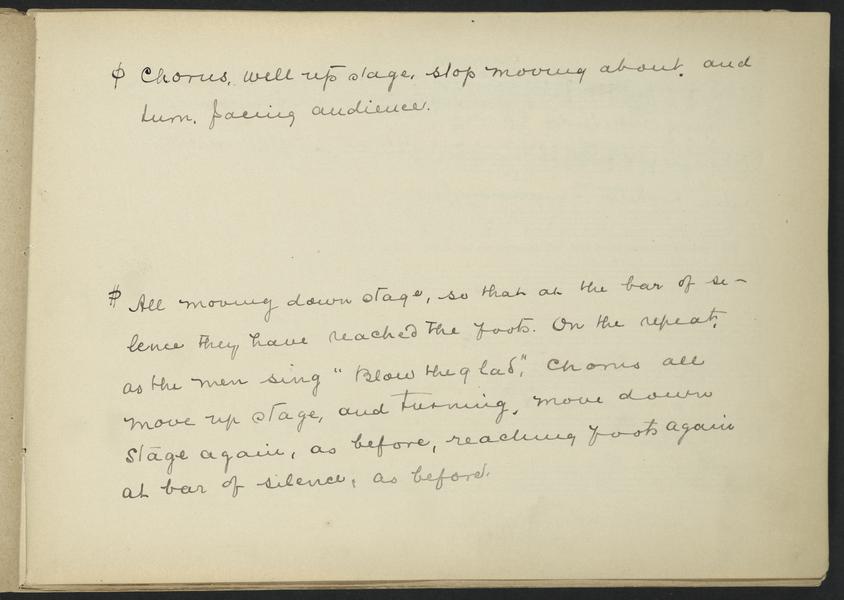 φ Chorus, well up stage, stop moving about, and
turn, facing audience.
# All moving down stage, so that at the bar of si-
lence they have reached the foots. On the repeat,
as the men sing "Blow the glad", Chorus all
move up stage, and turning, move down
stage again, as before, reaching foots again
at bar of silence, as before.